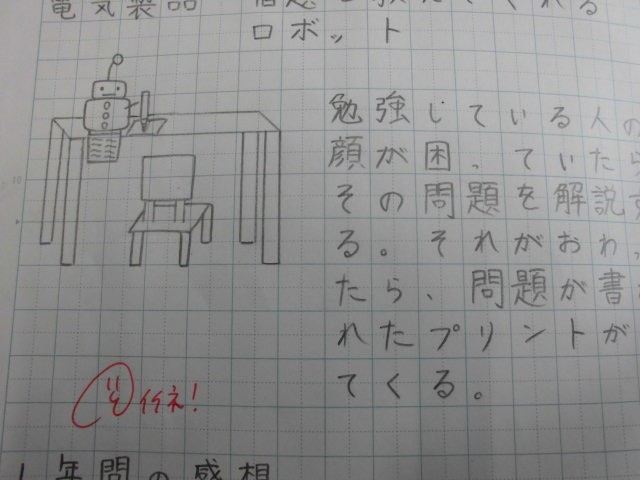 電気製品
ロボット
勉強している人の
顔が困っていたら
その問題を解説す
る。それがおわっ
たら、問題が書か
れたプリントが
てくる。
イイネ!
1年間の感想